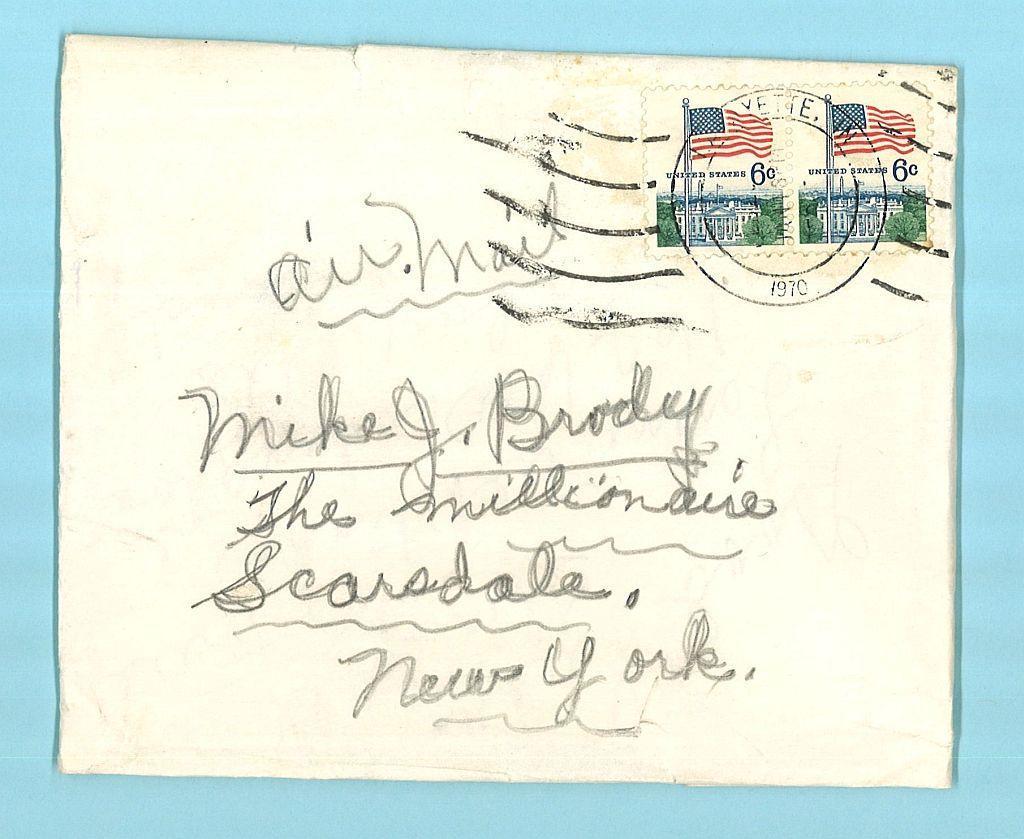 UNITED STATES 6c
UNITED STATES 6c
1970
air Mail
Mike J. Brody
The millionaire
Scarsdale,
New York.